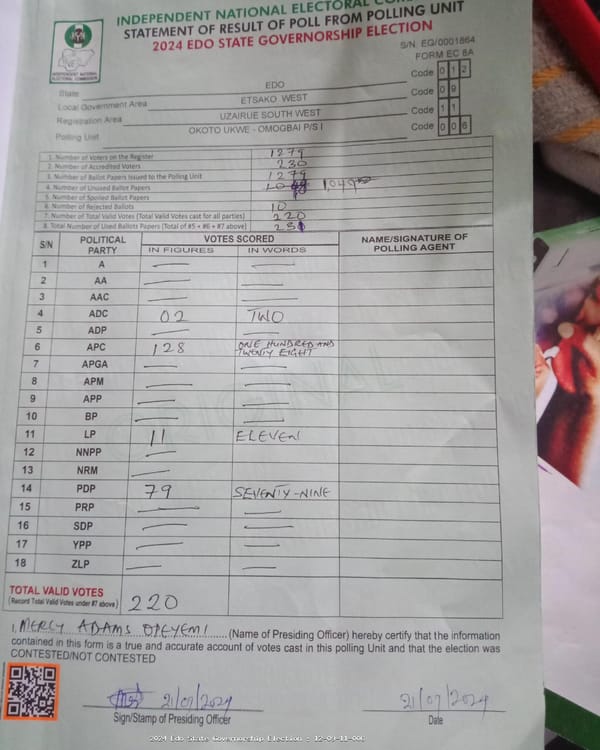 INDEPENDENT NATIONAL ELECTORAL
STATEMENT OF RESULT OF POLL FROM POLLING UNIT
2024 EDO STATE GOVERNORSHIP ELECTION
S/N. EG/0001864
FORM EC 8A
INDEPENDENT NATIONAL ELECTORAL COMMISSION
State EDO Code 0 1 2
Local Government Area ETSAKO WEST Code 0 9
Registration Area UZAIRUE SOUTH WEST Code 1 1
Polling Unit OKOTO UKWE - OMOGBAI P/S I Code 0 0 6
1. Number of Voters on the Register 1279
2. Number of Accredited Voters 230
3. Number of Ballot Papers Issued to the Polling Unit 1279
4. Number of Unused Ballot Papers 1,049
5. Number of Spoiled Ballot Papers
6. Number of Rejected Ballots 10
7. Number of Total Valid Votes (Total Valid Votes cast for all parties) 220
8. Total Number of Used Ballots Papers (Total of #5 + #6 + #7 above)
S/N POLITICAL PARTY VOTES SCORED NAME/SIGNATURE OF POLLING AGENT
IN FIGURES IN WORDS
1 A
2 AA
3 AAC
4 ADC 02 TWO
5 ADP
6 APC 128 ONE HUNDRED AND TWENTY EIGHT
7 APGA
8 APM
9 APP
10 BP
11 LP 11 ELEVEN
12 NNPP
13 NRM
14 PDP 79 SEVENTY-NINE
15 PRP
16 SDP
17 YPP
18 ZLP
TOTAL VALID VOTES
(Record Total Valid Votes under #7 above) 220
I, MERCY ADAMS OPEYEMI (Name of Presiding Officer) hereby certify that the information
contained in this form is a true and accurate account of votes cast in this polling Unit and that the election was
CONTESTED/NOT CONTESTED
21/09/2024 21/09/2024
Sign/Stamp of Presiding Officer Date
2024 Edo State Governorship Election : 12-09-11-006